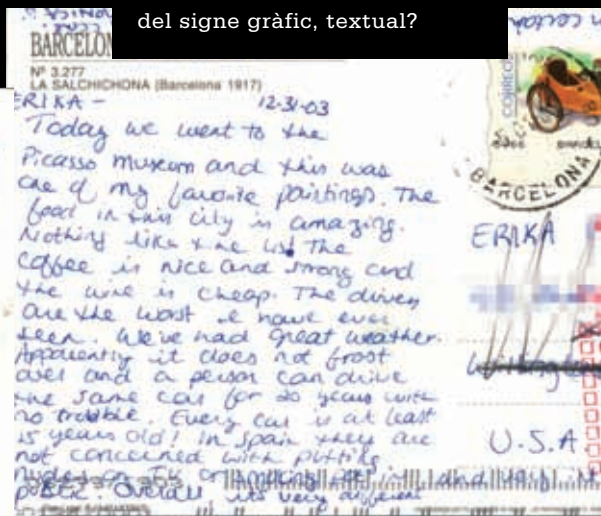 del signe gràfic, textual?
BARCELON
Nº 3.277
LA SALCHICHONA (Barcelona 1917)
ERIKA - 12-31-03
Today we went to the
Picasso museum and this was
one of my favorite paintings. The
food in this city is amazing.
Nothing like the US! The
coffee is nice and strong and
the wine is cheap. The drivers
are the worst I have ever
seen. We've had great weather.
Apparently it does not frost
over and a person can drive
the same car for 20 years with
no trouble. Every car is at least
15 years old! In Spain they are
not concerned with putting
nudes on TV or smoking in
public. Overall its very different
CORREOS
BARCELONA
ERIKA
U.S.A.